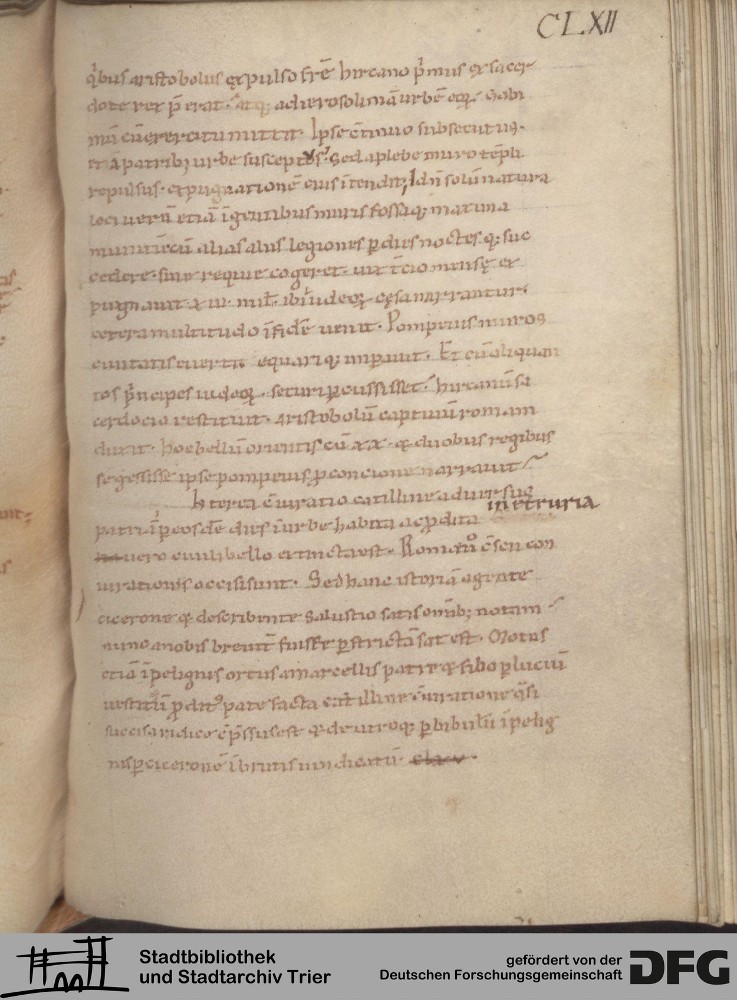 CLXII
q̍bus aristobolus expulso fr̄e hircano p̍mus ex sacer
dote rex p̄ erat · atq; ad ierosolimā urbē eoꝝ · Gabi
niū cū exercitu mittit · Ipse c̄tinuo subsecutus ·
et a patrib; urbe susceptus · sed a plebe muro tēpli
repulsus · expugnationē eius ītendit; Id n̄ solū natura
loci uerū etiā īgentibus muris fossaq; maxima
munitū cū alias aliis legiones p̱ dies noctesq; suc
cedere · sine requie cogeret · uix t̄cio mense ex
pugnauit · xiii · mil̄ · ibi iudeoꝝ cęsa narrantur ·
cetera multitudo ī fidē uenit · Pompeius muros
ciuitatis euerti equariq; imp̱auit · Et cū aliquan
tos p̍ncipes iudeoꝝ securi p̱cussisset · hircanū sa
cerdocio restituit · aristobolū captiuū romam
duxit · hoc bellū orientis cū xx · & duobus regibus
se gessisse ipse pompeius p̱ concione narrauit
Interea c̄iuratio catilline aduersus
patriā p̱ eosdē dies ī urbe habita ac p̱dita in etruria
uero ciuili bello extincta est · Romę c̄scii con
iurationis occisi sunt · Sed hanc istoriā agente
cicerone & describente salustio satis omīb; notam
nunc a nobis breuit̄ fuisse p̱strictā sat est · Motus
etiā ī pelignis ortus a marcellis patre & filio p̱ luciū
uestiū p̱dit⁹ patefacta catilline c̄iuratione q̍si
succisa radice c̄p̄ssus est & de utroq; p̱ bibulū ī pelig
nis p̱ ciceronē ī brutis uindicatū ·
Stadtbibliothek
und Stadtarchiv Trier
gefördert von der
Deutschen Forschungsgemeinschaft
DFG